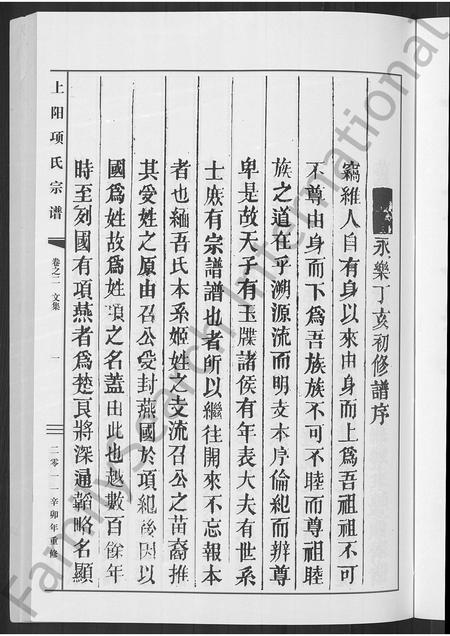 永樂丁亥初修譜序
竊維人自有身以來由身而上爲吾祖祖不可
不尊由身而下爲吾族族不可不睦而尊祖睦
族之道在乎溯源流而明支本序倫紀而辨尊
卑是故天子有玉牒諸侯有年表大夫有世系
士庶有宗譜譜也者所以繼往開來不忘報本
者也緬吾氏本系姬姓之支流召公之苗裔推
其受姓之原由召公受封燕國於項紀後因以
國爲姓故爲姓項之名蓋由此也越數百餘年
時至列國有項燕者爲楚頁將深通韜略名顯
上阳项氏宗谱
卷之一 文集
一
二零一一辛卯年重修
FamilySearch International